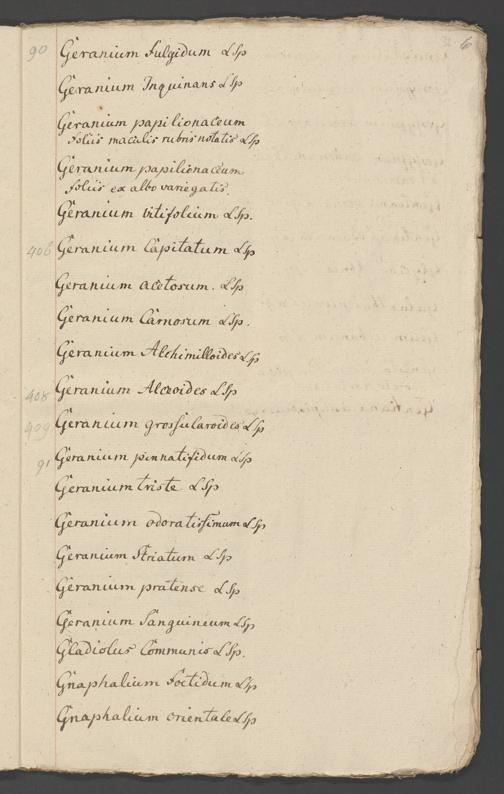 6
90 Geranium fulgidum LSp
Geranium Inquinans LSp
Geranium papilionaceum
foliis maculis rubris notatis LSp
Geranium papilionaceum
foliis ex albo variegatis.
Geranium vitifolium LSp.
406 Geranium Capitatum LSp
Geranium acetosum. LSp
Geranium Carnosum LSp.
Geranium Alchimilloides LSp
408 Geranium Alceoides LSp
409 Geranium grossularoides LSp
91 Geranium pinnatifidum LSp
Geranium triste LSp
Geranium odoratissimum LSp
Geranium Striatum LSp
Geranium pratense LSp
Geranium Sanguineum LSp
Gladiolus Communis LSp.
Gnaphalium foetidum LSp
Gnaphalium orientale LSp